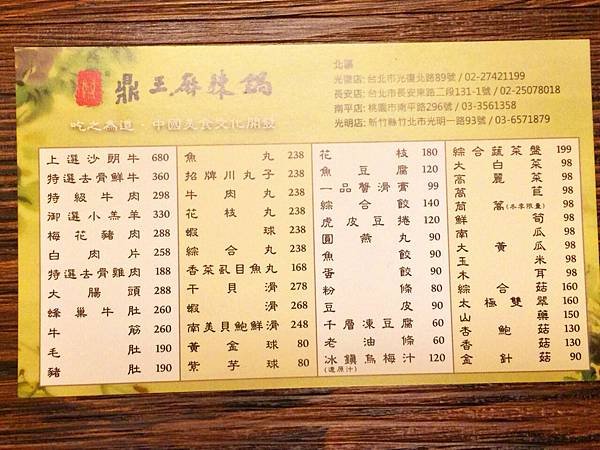 鼎王麻辣鍋
吃之為道・中國美食文化開發
北區
光復店: 台北市光復北路89號 / 02-27421199
長安店: 台北市長安東路二段131-1號 / 02-25078018
南平店: 桃園市南平路296號 / 03-3561358
光明店: 新竹縣竹北市光明一路93號 / 03-6571879
上選沙朗牛 680
特選去骨鮮牛 360
特級牛肉 298
御選小羔羊 330
梅花豬肉 288
白肉片 258
特選去骨雞肉 188
大腸頭 288
蜂巢牛肚 260
牛筋 260
毛肚 190
豬肚 190
魚丸 238
招牌川丸子 238
牛肉丸 238
花枝丸 238
蝦球 238
綜合丸 238
香菜虱目魚丸 168
干貝滑 278
蝦滑 268
南美貝鮑鮮滑 248
黃金球 80
紫芋球 80
花枝 180
魚豆腐 120
一品蟹滑膏 99
綜合餃 140
虎皮豆捲 120
圓燕丸 90
魚餃 90
蛋餃 90
粉條 80
豆皮 90
千層凍豆腐 60
老油條 60
冰鎮烏梅汁 120
(還原汁)
綜合蔬菜盤 199
大白菜 98
高麗菜 98
萵苣 98
茼蒿(冬季限量) 98
鮮筍 98
南瓜 98
大黃瓜 98
玉米 98
木耳 98
綜合菇 160
太極雙翠 160
山藥 150
杏鮑菇 130
香菇 130
金針菇 90